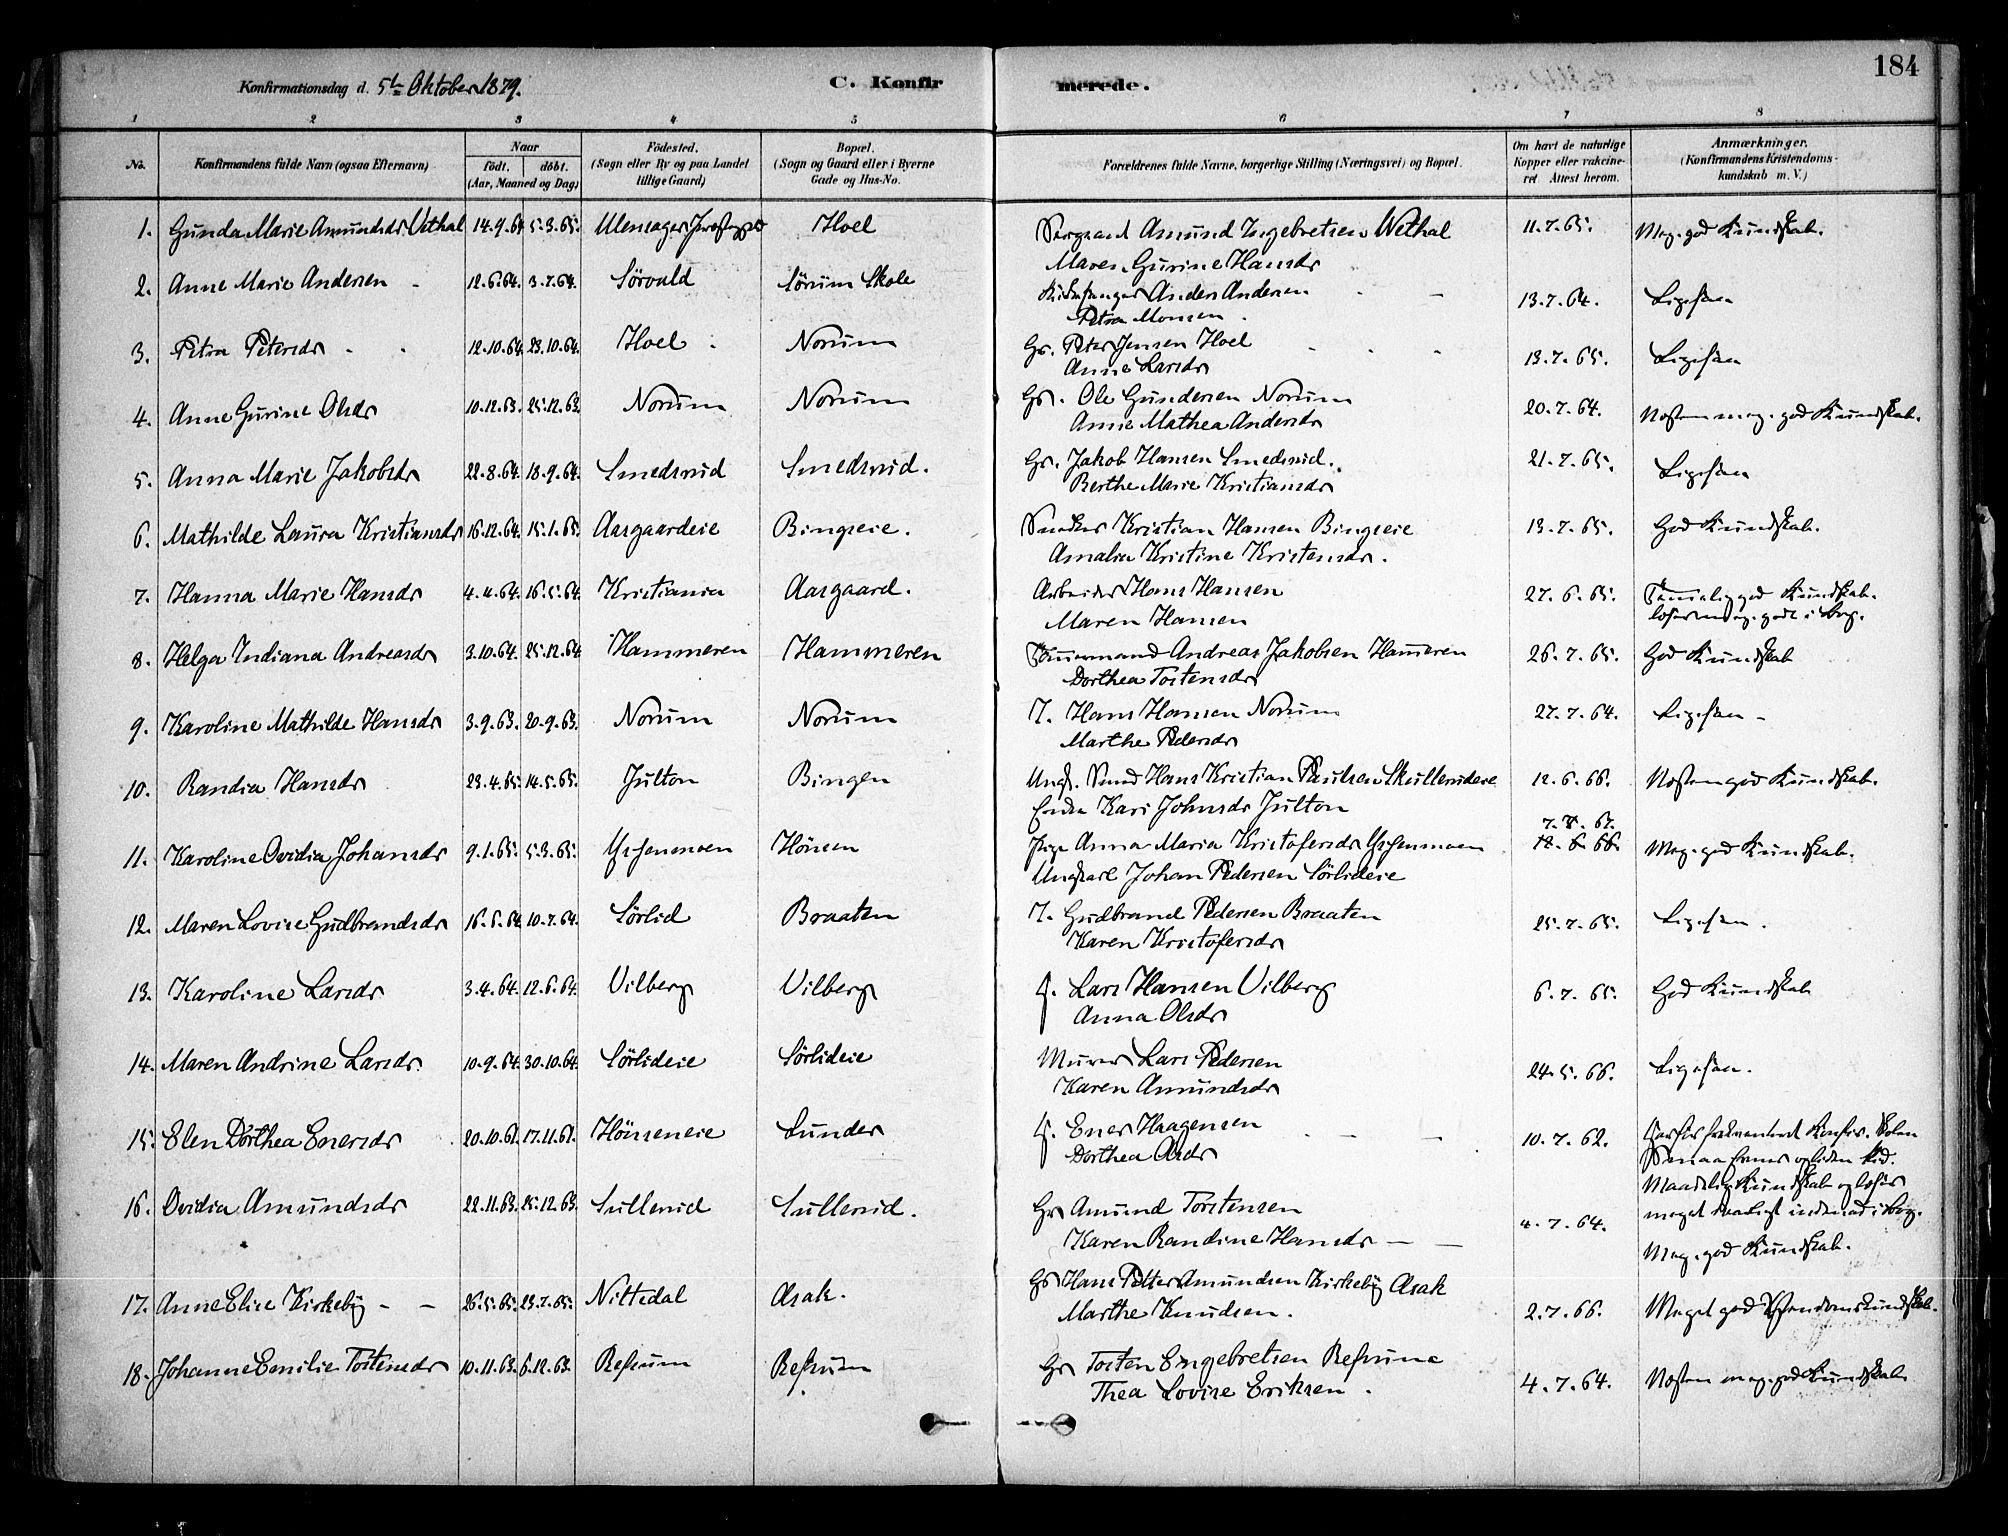 184
Konfirmationsdag d. 5te Oktober 1879.
C. Konfirmerede.
1 2 3 4 5 6 7 8
No.
Konfirmandens fulde Navn (ogsaa Efternavn).
Naar
født. døbt.
(Aar, Maaned og Dag)
Fødested.
(Sogn eller By og paa Landet
tillige Gaard)
Bopæl.
(Sogn og Gaard eller i Byerne
Gade og Hus-No.
Forældrenes fulde Navne, borgerlige Stilling (Næringsvei) og Bopæl.
Om havt de naturlige
Kopper eller vakcine-
ret. Attest herom.
Anmærkninger.
(Konfirmandens Kristendoms-
kundskab m. V.)
1. Gunda Marie Amundsdr. Vethal 14.9.64 5.3.65. Ullensager Hoel Amund Ingebretsen Wethal 11.7.65. Meg. god Kundskab.
Maren Gurine Hansdr
2. Anne Marie Andersen 12.6.64. 3.7.64. Sörvald Sörum Skole Anders Andersen 13.7.64. Ligesaa
Petra Monsen.
3. Petra Petersdr 12.10.64. 23.10.64. Hoel Norum Gr. Peter Jensen Hoel 13.7.65. Ligesaa
Anne Larsdr
4. Anne Gurine Olsdr 10.12.63. 25.12.63. Norum Norum Gr. Ole Gundersen Norum 20.7.64. Næsten meg. god Kundskab.
Anne Mathea Andersdr
5. Anna Marie Jakobsdr 22.8.64. 18.9.64. Smedsrud Smedsrud. Gr. Jakob Hansen Smedsrud. 21.7.65. Ligesaa
Berthe Marie Kristiansdr
6. Mathilde Laura Kristiansdr 16.12.64. 15.1.65. Aasgaardeie Bingseie. Kristian Hansen Bingseie 13.7.65. God Kundskab.
Amalia Kristine Kristensdr.
7. Hanna Marie Hansdr 4.4.64. 16.5.64 Kristiania Aasgaard. Arbeider Hans Hansen 27.6.65. Temmelig god Kundskab.
Maren Hansen læser meg. godt i Bog.
8. Helga Indiana Andreasdr 3.10.64. 25.12.64 Hammeren Hammeren Tømmermand Andreas Jakobsen Hameren 26.7.65. God Kundskab
Dorthea Torstensdr
9. Karoline Mathilde Hansdr 3.9.63. 20.9.63. Norum Norum I. Hans Hansen Norum 27.7.64. Ligesaa
Marthe Pedersdr
10. Randia Hansdr 23.4.65. 14.5.65. Julton Bingen Ungk. Hans Kristian Paulsen Skullerudeie 12.6.66. Næsten god Kundskab.
Enke Kari Johnsdr Julton
7.7.67.
11. Karoline Ovidia Johansdr 9.1.65. 5.3.65. Hönsen Pige Anna Maria Kristofersdr 12.6.66 Meg. god Kundskab.
Ungkarl Johan Pedersen Sörlideie
12. Maren Lovise Gudbrandsdr 16.6.64 10.7.64. Sörlid Braaten I. Gudbrand Pedersen Braaten 25.7.65. Ligesaa.
Karen Kristofersdr
13. Karoline Larsdr 3.4.64. 12.6.64. Vilberg Vilberg Lars Hansen Vilberg 6.7.65. God Kundskab
Anna Olsdr
14. Maren Andrine Larsdr. 10.9.64 30.10.64. Sörlideie Sörlideie Murer Lars Pedersen 24.5.66. Ligesaa.
Karen Amundsdr
15. Elen Dorthea Enersdr 20.10.61. 17.11.61. Hönseneie Lunder Ener Haagensen 10.7.62.
Dorthea Olsdr
Maadelig Kundskab og læser
16. Ovidia Amundsdr 22.11.63. 25.12.63. Sullerud Sullerud. Gr. Amund Torstensen 4.7.64. meget daarligt indenad i Bog.
Karen Randine Hansdr Meg. god Kundskab.
17. Anne Elise Kirkeby 26.5.65. 23.7.65. Nittedal Asak. Gr. Hans Petter Amundsen Kirkeby Asak 2.7.66. Meget god Kristendomskundskab.
Marthe Knudsen.
18. Johanne Emilie Torstensdr 10.11.63. 6.12.63. Refsum Refsum Gr. Torsten Engebretsen Refsum 4.7.64. Næsten meg. god Kundskab
Thea Lovise Eriksen.